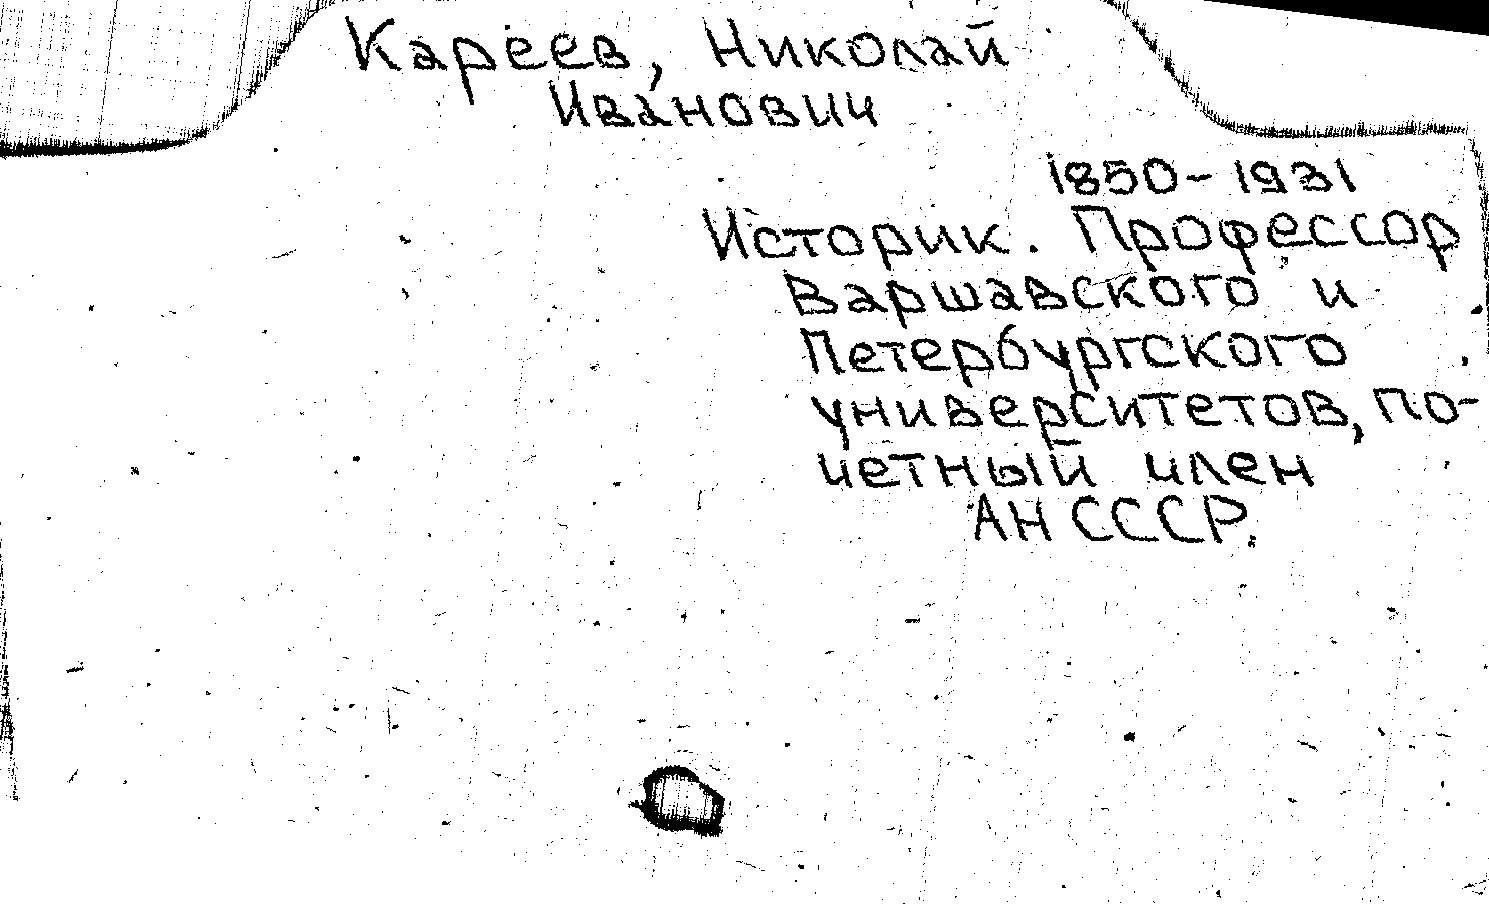 Кареев, Николай
Иванович
1850-1931
Историк. Профессор
Варшавского и
Петербургского
университетов, по-
четный член
АН СССР.